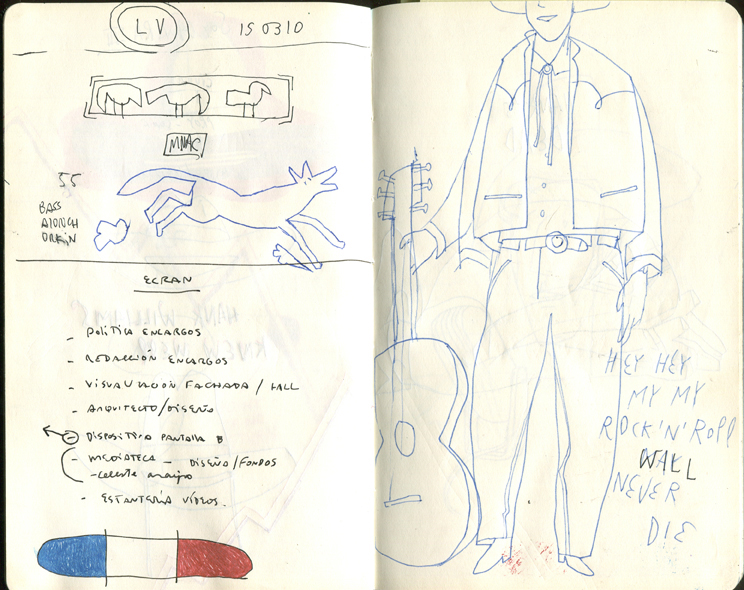 LV
150310
MNAC
55
BASS
ORKIN
ECRAN
- POLÍTICA ENCARGOS
- REDACCIÓN ENCARGOS
- VISUALIZACIÓN FACHADA / HALL
- ARQUITECTO/DISEÑO
- DISPOSITIVO PANTALLA B
- MEDIATECA - DISEÑO/FONDOS
- celeste araújo
- ESTANTERÍA VÍDEOS.
HEY HEY
MY MY
ROCK'N'ROLL
WALL
NEVER
DIE